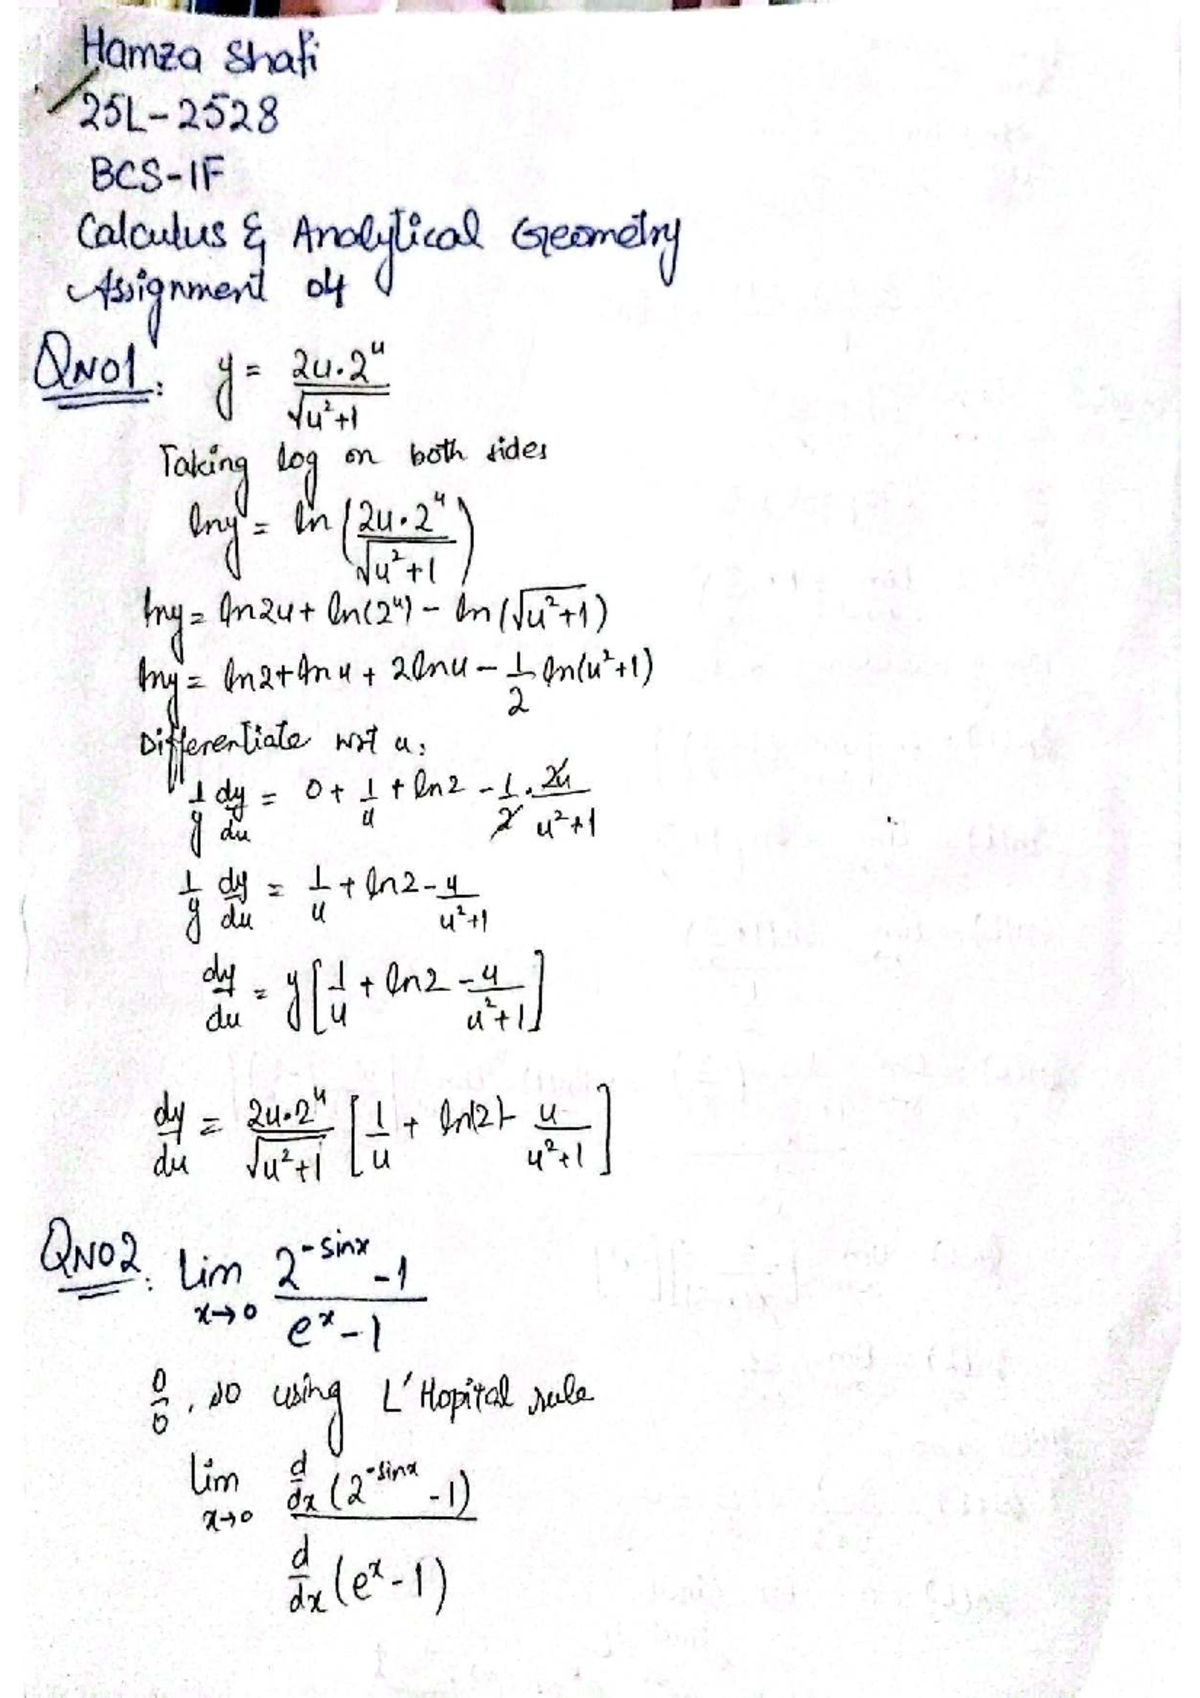 Hamza Shafi
25L-2528
BCS-1F
Calculus & Analytical Geometry
Assignment 04
QNO1: y = 2u·2^u / √(u²+1)
Taking log on both sides
lny = ln (2u·2^u / √(u²+1))
lny = ln2u + ln(2^u) - ln(√(u²+1))
lny = ln2+lnu + 2lnu - 1/2 ln(u²+1)
Differentiate wrt u:
1/y dy/du = 0 + 1/u + ln2 - 1/2 · 2u/(u²+1)
1/y dy/du = 1/u + ln2 - u/(u²+1)
dy/du = y[1/u + ln2 - u/(u²+1)]
dy/du = 2u·2^u / √(u²+1) [1/u + ln(2) - u/(u²+1)]
QNO2: Lim x→0 (2^-sinx - 1) / (e^x - 1)
0/0, so using L'Hopital rule
Lim x→0 d/dx (2^-sinx - 1) / d/dx (e^x - 1)